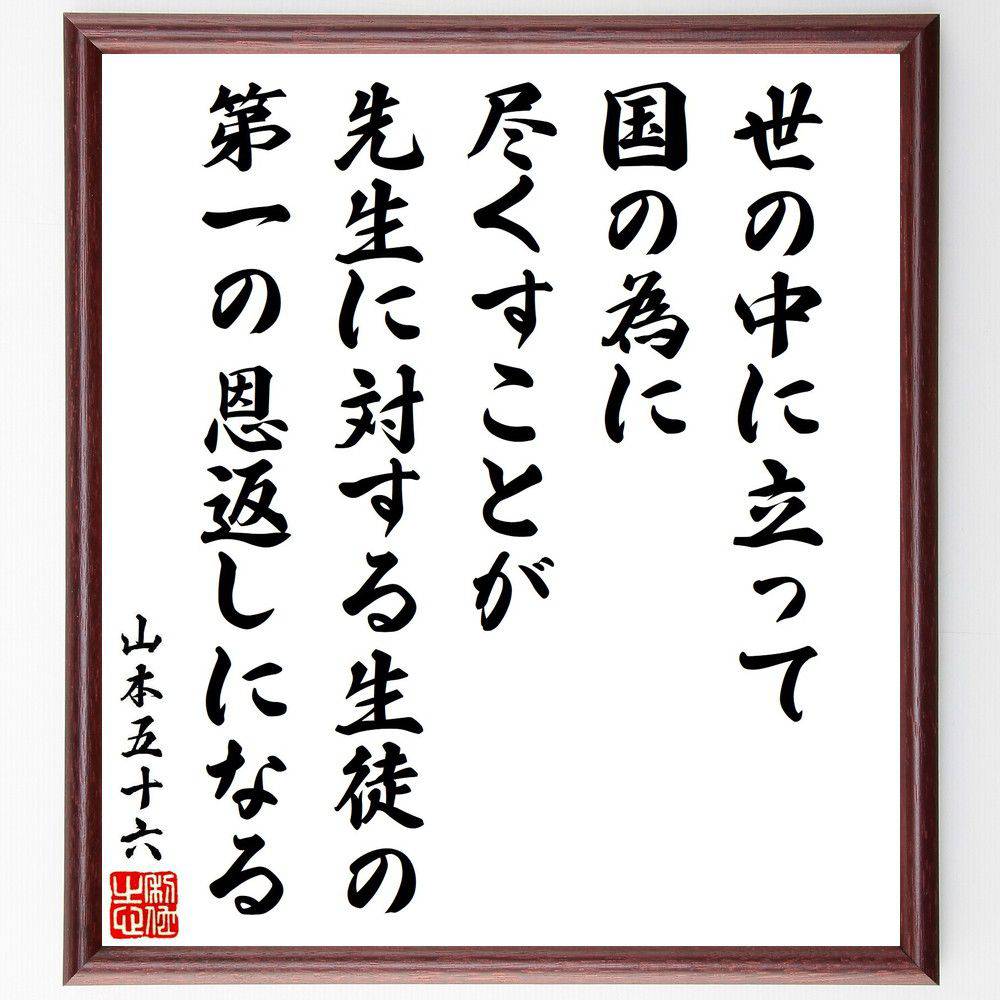 世の中に立って
国の為に
尽くすことが
先生に対する生徒の
第一の恩返しになる
山本五十六